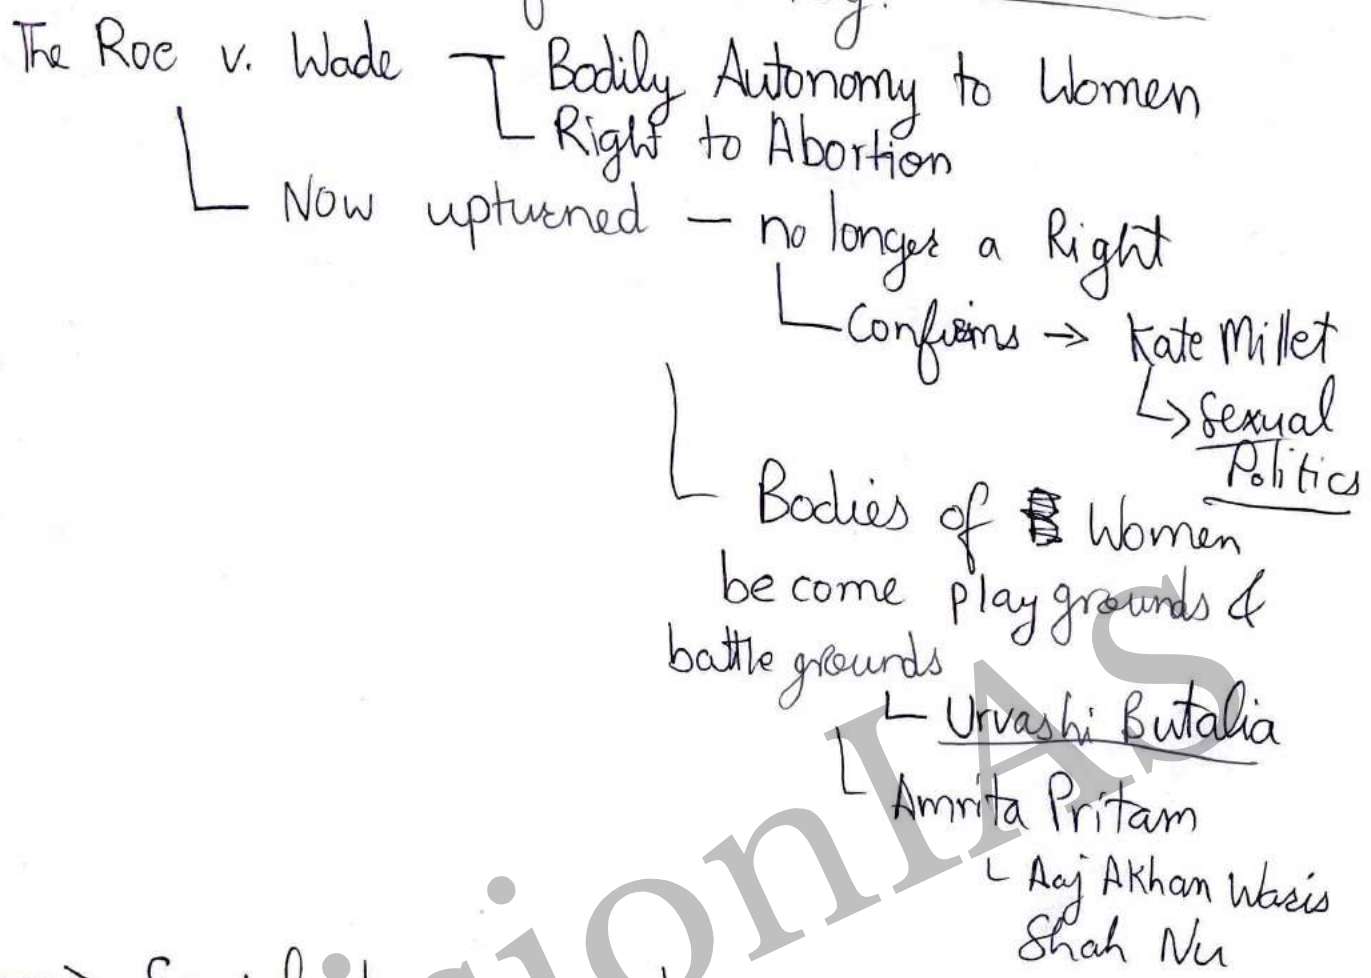 The Roe v. Wade Bodily Autonomy to Women
Right to Abortion
Now upturned — no longer a Right
Confirms → Kate Millet
↳ Sexual
Politics
Bodies of Women
become playgrounds &
battle grounds
Urvashi Butalia
Amrita Pritam
Aaj Akhan Waris
Shah Nu
VisionIAS